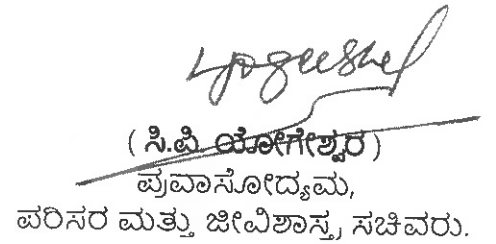 ( ಸಿ.ಪಿ ಯೋಗೇಶ್ವರ )
ಪ್ರವಾಸೋದ್ಯಮ,
ಪರಿಸರ ಮತ್ತು ಜೀವಿಶಾಸ್ತ್ರ ಸಚಿವರು.